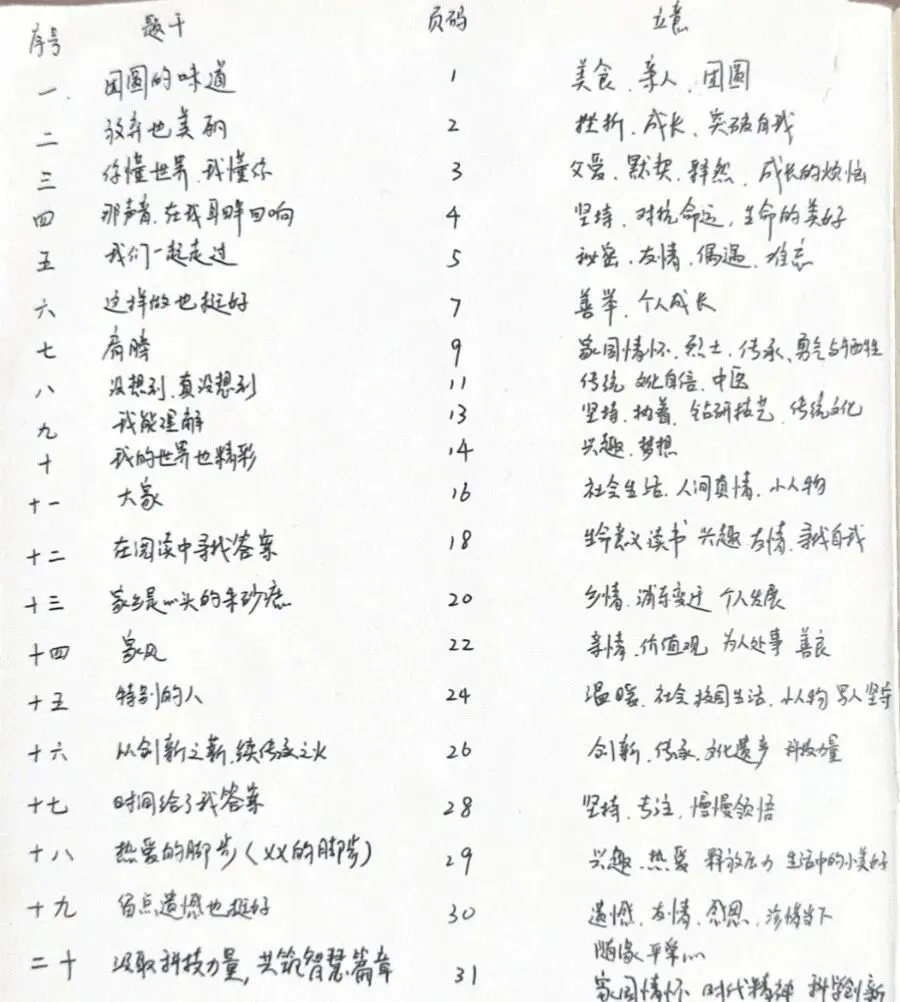 序号 题干 页码 立意
一 团圆的味道 1 美食、亲人、团圆
二 放弃也美丽 2 挫折、成长、突破自我
三 你懂世界,我懂你 3 父爱、默契、释然、成长的烦恼
四 那声音,在我耳畔回响 4 坚持、对抗命运,生命的美好
五 我们一起走过 5 秘密、友情、偶遇、难忘
六 这样做也挺好 7 善举、个人成长
七 肩膀 9 家国情怀、烈士、传承、勇气与牺牲
八 没想到,真没想到 11 传统 文化自信、中医
九 我能理解 13 坚持、执着、钻研技艺、传统文化
十 我的世界也精彩 14 兴趣、梦想
十一 大家 16 社会生活、人间真情、小人物
十二 在阅读中寻找答案 18 生命意义 读书 兴趣 友情、寻找自我
十三 家乡是心头的朱砂痣 20 乡情、浦东变迁 个人发展
十四 家风 22 亲情、价值观 为人处事 善良
十五 特别的人 24 温暖、社会校园生活、小人物 坚持
十六 以创新之薪,续传承之火 26 创新、传承、文化遗产 科技力量
十七 时间给了我答案 28 坚持、专注、慢慢领悟
十八 热爱的脚步(XX的脚步) 29 兴趣、热爱 释放压力 生活中的小美好
十九 留点遗憾也挺好 30 遗憾、友情、感恩、珍惜当下
随缘 平常心
二十 汲取科技力量,共筑智慧篇章 31 家国情怀 时代精神 科学创新